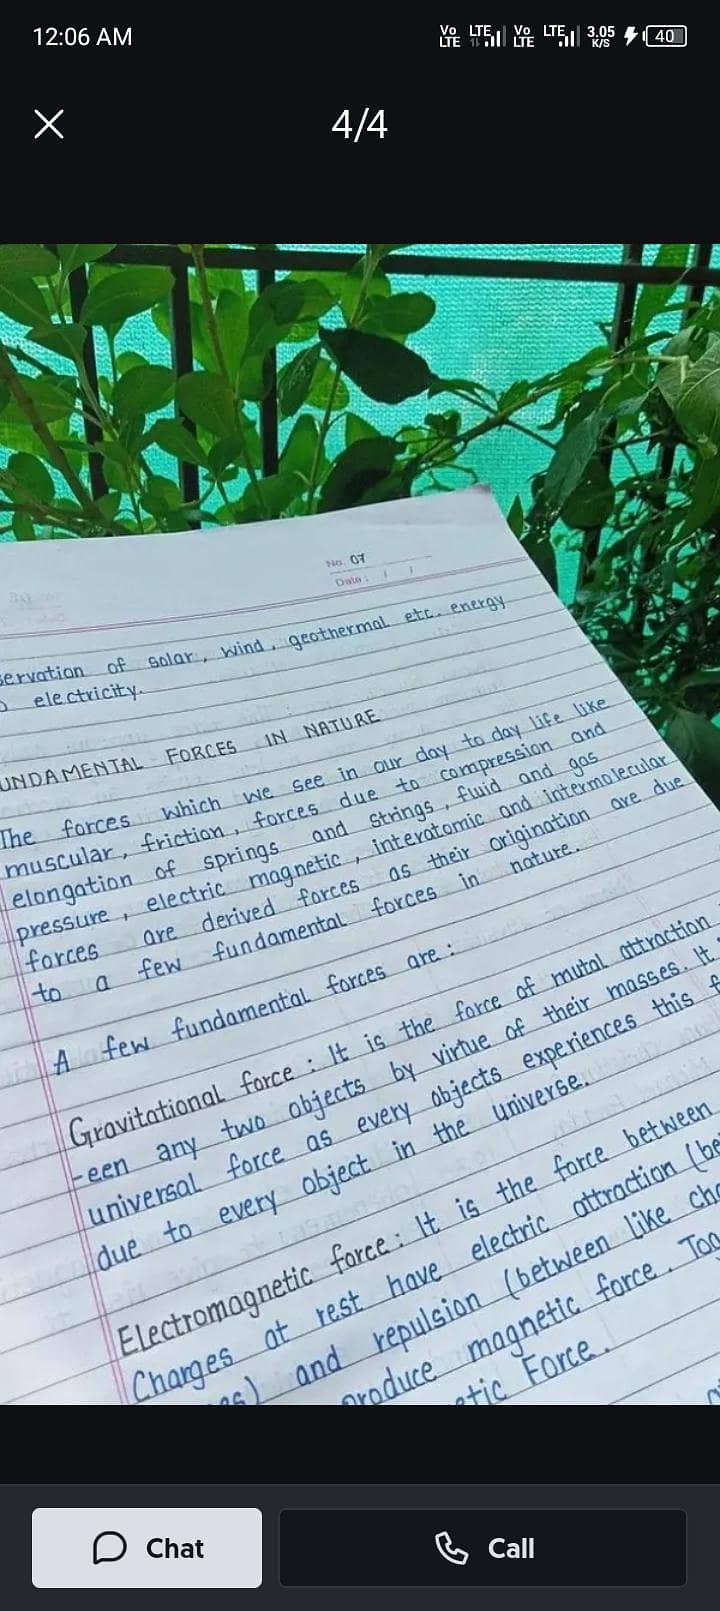 12:06 AM
Vo LTE LTE Vo LTE LTE 3.05 K/S 40
4/4
No. 07
Date: / /
servation of solar, wind, geothermal etc. energy
electricity.
UNDAMENTAL FORCES IN NATURE
The forces which we see in our day to day life like
muscular, friction, forces due to compression and
elongation of springs and strings, fluid and gas
pressure, electric magnetic, interatomic and intermolecular
forces are derived forces as their origination are due
to a few fundamental forces in nature.
A few fundamental forces are:
Gravitational force: It is the force of mutal attraction
-een any two objects by virtue of their masses. It
universal force as every objects experiences this f
due to every object in the universe.
Electromagnetic force: It is the force between
Charges at rest have electric attraction (be
es) and repulsion (between like cha
produce magnetic force. Tog
etic Force.
Chat
Call